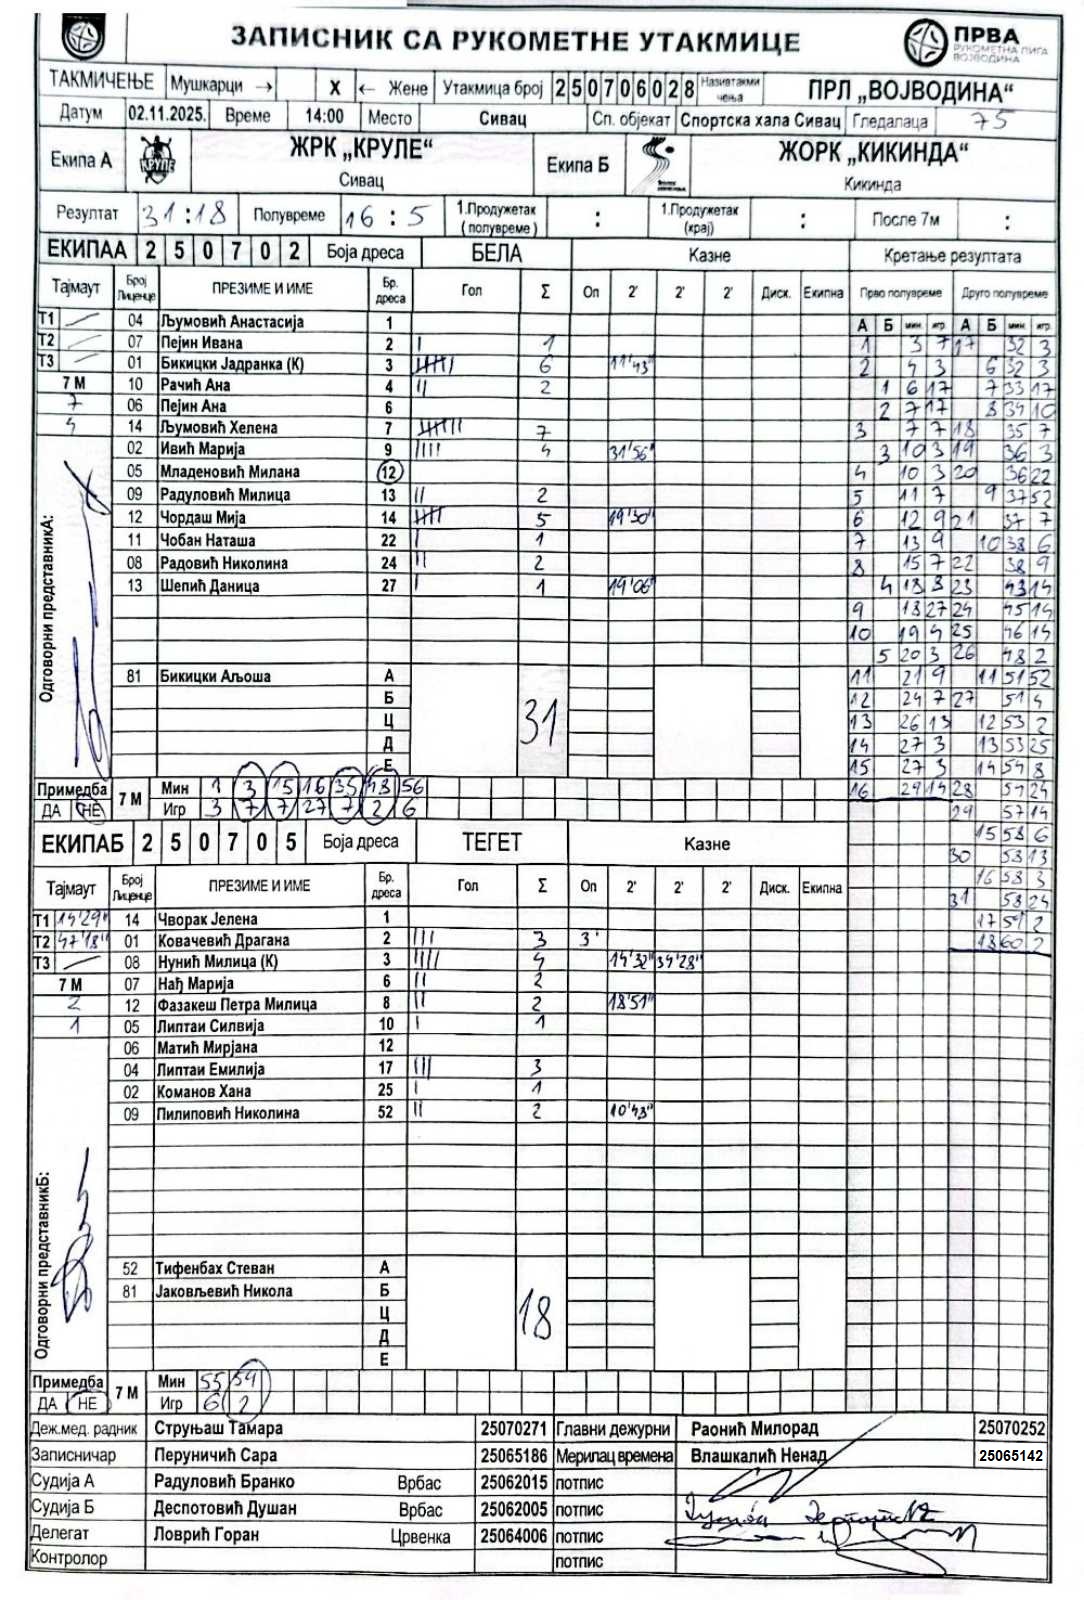 ЗАПИСНИК СА РУКОМЕТНЕ УТАКМИЦЕ
ПРВА РУКОМЕТНА ЛИГА ВОЈВОДИНА
ТАКМИЧЕЊЕ Мушкарци → X ← Жене Утакмица број 25070602 8 Назив такмичења ПРЛ „ВОЈВОДИНА“
Датум 02.11.2025. Време 14:00 Место Сивац Сп. објекат Спортска хала Сивац Гледалаца 75
Екипа А КРУЛЕ ЖРК „КРУЛЕ“ Сивац Екипа Б ЖОРК „КИКИНДА“ Кикинда
Резултат 31:18 Полувреме 16:5 1.Продужетак (полувреме) : 1.Продужетак (крај) : После 7м :
ЕКИПАА 2 5 0 7 0 2 Боја дреса БЕЛА Казне Кретање резултата
Тајмаут Број Лиценце ПРЕЗИМЕ И ИМЕ Бр. дреса Гол Σ Оп 2' 2' 2' Диск. Екипна Прво полувреме Друго полувреме
А Б мин игр А Б мин игр
Т1 04 Љумовић Анастасија 1
Т2 07 Пејин Ивана 2 I 1
Т3 01 Бикицки Јадранка (К) 3 6 11'43"
7 М 10 Рачић Ана 4 II 2
7 06 Пејин Ана 6
4 14 Љумовић Хелена 7 7
02 Ивић Марија 9 IIII 4 31'56"
05 Младеновић Милана 12
09 Радуловић Милица 13 II 2
12 Чордаш Мија 14 5 19'30"
11 Чобан Наташа 22 I 1
08 Радовић Николина 24 II 2
13 Шепић Даница 27 I 1 19'06"
81 Бикицки Аљоша А
Б
Ц
Д
Е
31
Одговорни представникА:
1 3 7 17 32 3
2 4 3 6 32 3
1 6 17 7 33 17
2 7 17 8 34 10
3 7 7 18 35 7
3 10 3 19 36 3
4 10 3 20 36 22
5 11 7 9 37 52
6 12 9 21 37 7
7 13 9 10 38 6
8 15 7 22 38 9
4 18 8 23 43 14
9 18 27 24 45 14
10 19 4 25 46 14
5 20 3 26 48 2
11 21 9 11 51 52
12 24 7 27 51 4
13 26 13 12 53 2
14 27 3 13 53 25
15 27 3 14 54 8
16 29 14 28 57 24
29 57 14
15 58 6
30 58 13
16 58 3
31 58 24
17 59 2
18 60 2
Примедба ДА НЕ 7 М Мин 1 3 15 16 35 43 56
Игр 3 7 7 27 7 2 6
ЕКИПАБ 2 5 0 7 0 5 Боја дреса ТЕГЕТ Казне
Тајмаут Број Лиценце ПРЕЗИМЕ И ИМЕ Бр. дреса Гол Σ Оп 2' 2' 2' Диск. Екипна
Т1 14'29" 14 Чворак Јелена 1
Т2 47'18" 01 Ковачевић Драгана 2 III 3 3'
Т3 08 Нунић Милица (К) 3 IIII 4 14'32" 34'28"
7 М 07 Нађ Марија 6 II 2
2 12 Фазакеш Петра Милица 8 II 2 18'51"
1 05 Липтаи Силвија 10 I 1
06 Матић Мирјана 12
04 Липтаи Емилија 17 III 3
02 Команов Хана 25 I 1
09 Пилиповић Николина 52 II 2 10'43"
52 Тифенбах Стеван А
81 Јаковљевић Никола Б
Ц
Д
Е
18
Одговорни представникБ:
Примедба ДА НЕ 7 М Мин 55 59
Игр 6 2
Деж.мед. радник Струњаш Тамара 25070271 Главни дежурни Раонић Милорад 25070252
Записничар Перуничић Сара 25065186 Мерилац времена Влашкалић Ненад 25065142
Судија А Радуловић Бранко Врбас 25062015 потпис
Судија Б Деспотовић Душан Врбас 25062005 потпис
Делегат Ловрић Горан Црвенка 25064006 потпис
Контролор потпис